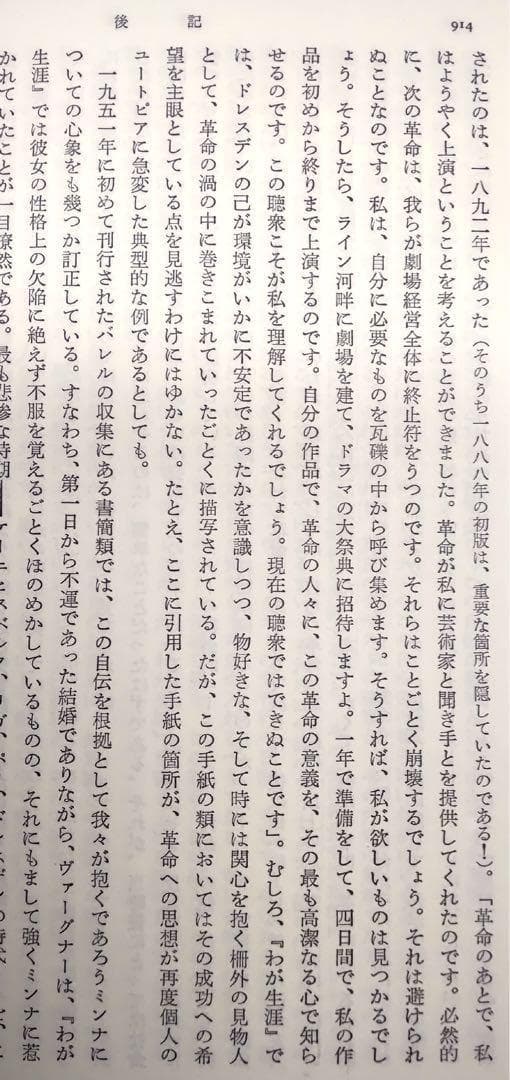 後記
914
されたのは、一八九二年であった（そのうち一八八八年の初版は、重要な箇所を隠していたのである！）。「革命のあとで、私
はようやく上演ということを考えることができました。革命が私に芸術家と聞き手とを提供してくれたのです。必然的
に、次の革命は、我らが劇場経営全体に終止符をうつのです。それらはことごとく崩壊するでしょう。それは避けられ
ぬことなのです。私は、自分に必要なものを瓦礫の中から呼び集めます。そうすれば、私が欲しいものは見つかるでし
ょう。そうしたら、ライン河畔に劇場を建て、ドラマの大祭典に招待しますよ。一年で準備をして、四日間で、私の作
品を初めから終りまで上演するのです。自分の作品で、革命の人々に、この革命の意義を、その最も高潔なる心で知ら
せるのです。この聴衆こそが私を理解してくれるでしょう。現在の聴衆ではできぬことです」。むしろ、『わが生涯』で
は、ドレスデンの己が環境がいかに不安定であったかを意識しつつ、物好きな、そして時には関心を抱く柵外の見物人
として、革命の渦の中に巻きこまれていったごとくに描写されている。だが、この手紙の類においてはその成功への希
望を主眼としている点を見逃すわけにはゆかない。たとえ、ここに引用した手紙の箇所が、革命への思想が再度個人の
ユートピアに急変した典型的な例であるとしても。
一九五一年に初めて刊行されたバレルの収集にある書簡類では、この自伝を根拠として我々が抱くであろうミンナに
ついての心象をも幾つか訂正している。すなわち、第一日から不運であった結婚でありながら、ヴァーグナーは、『わが
生涯』では彼女の性格上の欠陥に絶えず不服を覚えるごとくほのめかしているものの、それにもまして強くミンナに惹
かれていたことが一目瞭然である。最も悲惨な時期